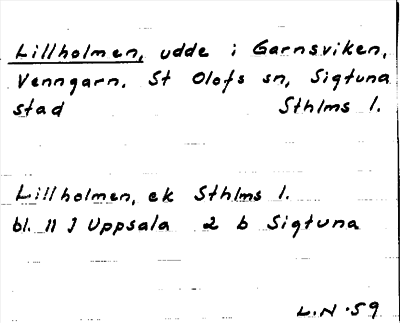 Lillholmen, udde i Garnsviken,
Venngarn. St Olofs sn, Sigtuna
stad Sthlms l.
Lillholmen, ek Sthlms l.
bl. 11 J Uppsala 2 b Sigtuna
L.N. 59